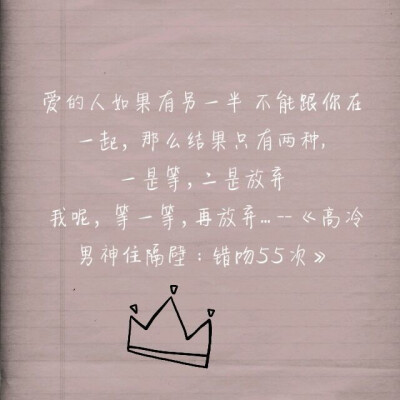 爱的人如果有另一半 不能跟你在
一起，那么结果只有两种，
一是等，二是放弃
我呢，等一等，再放弃...--《高冷
男神住隔壁：错吻55次》